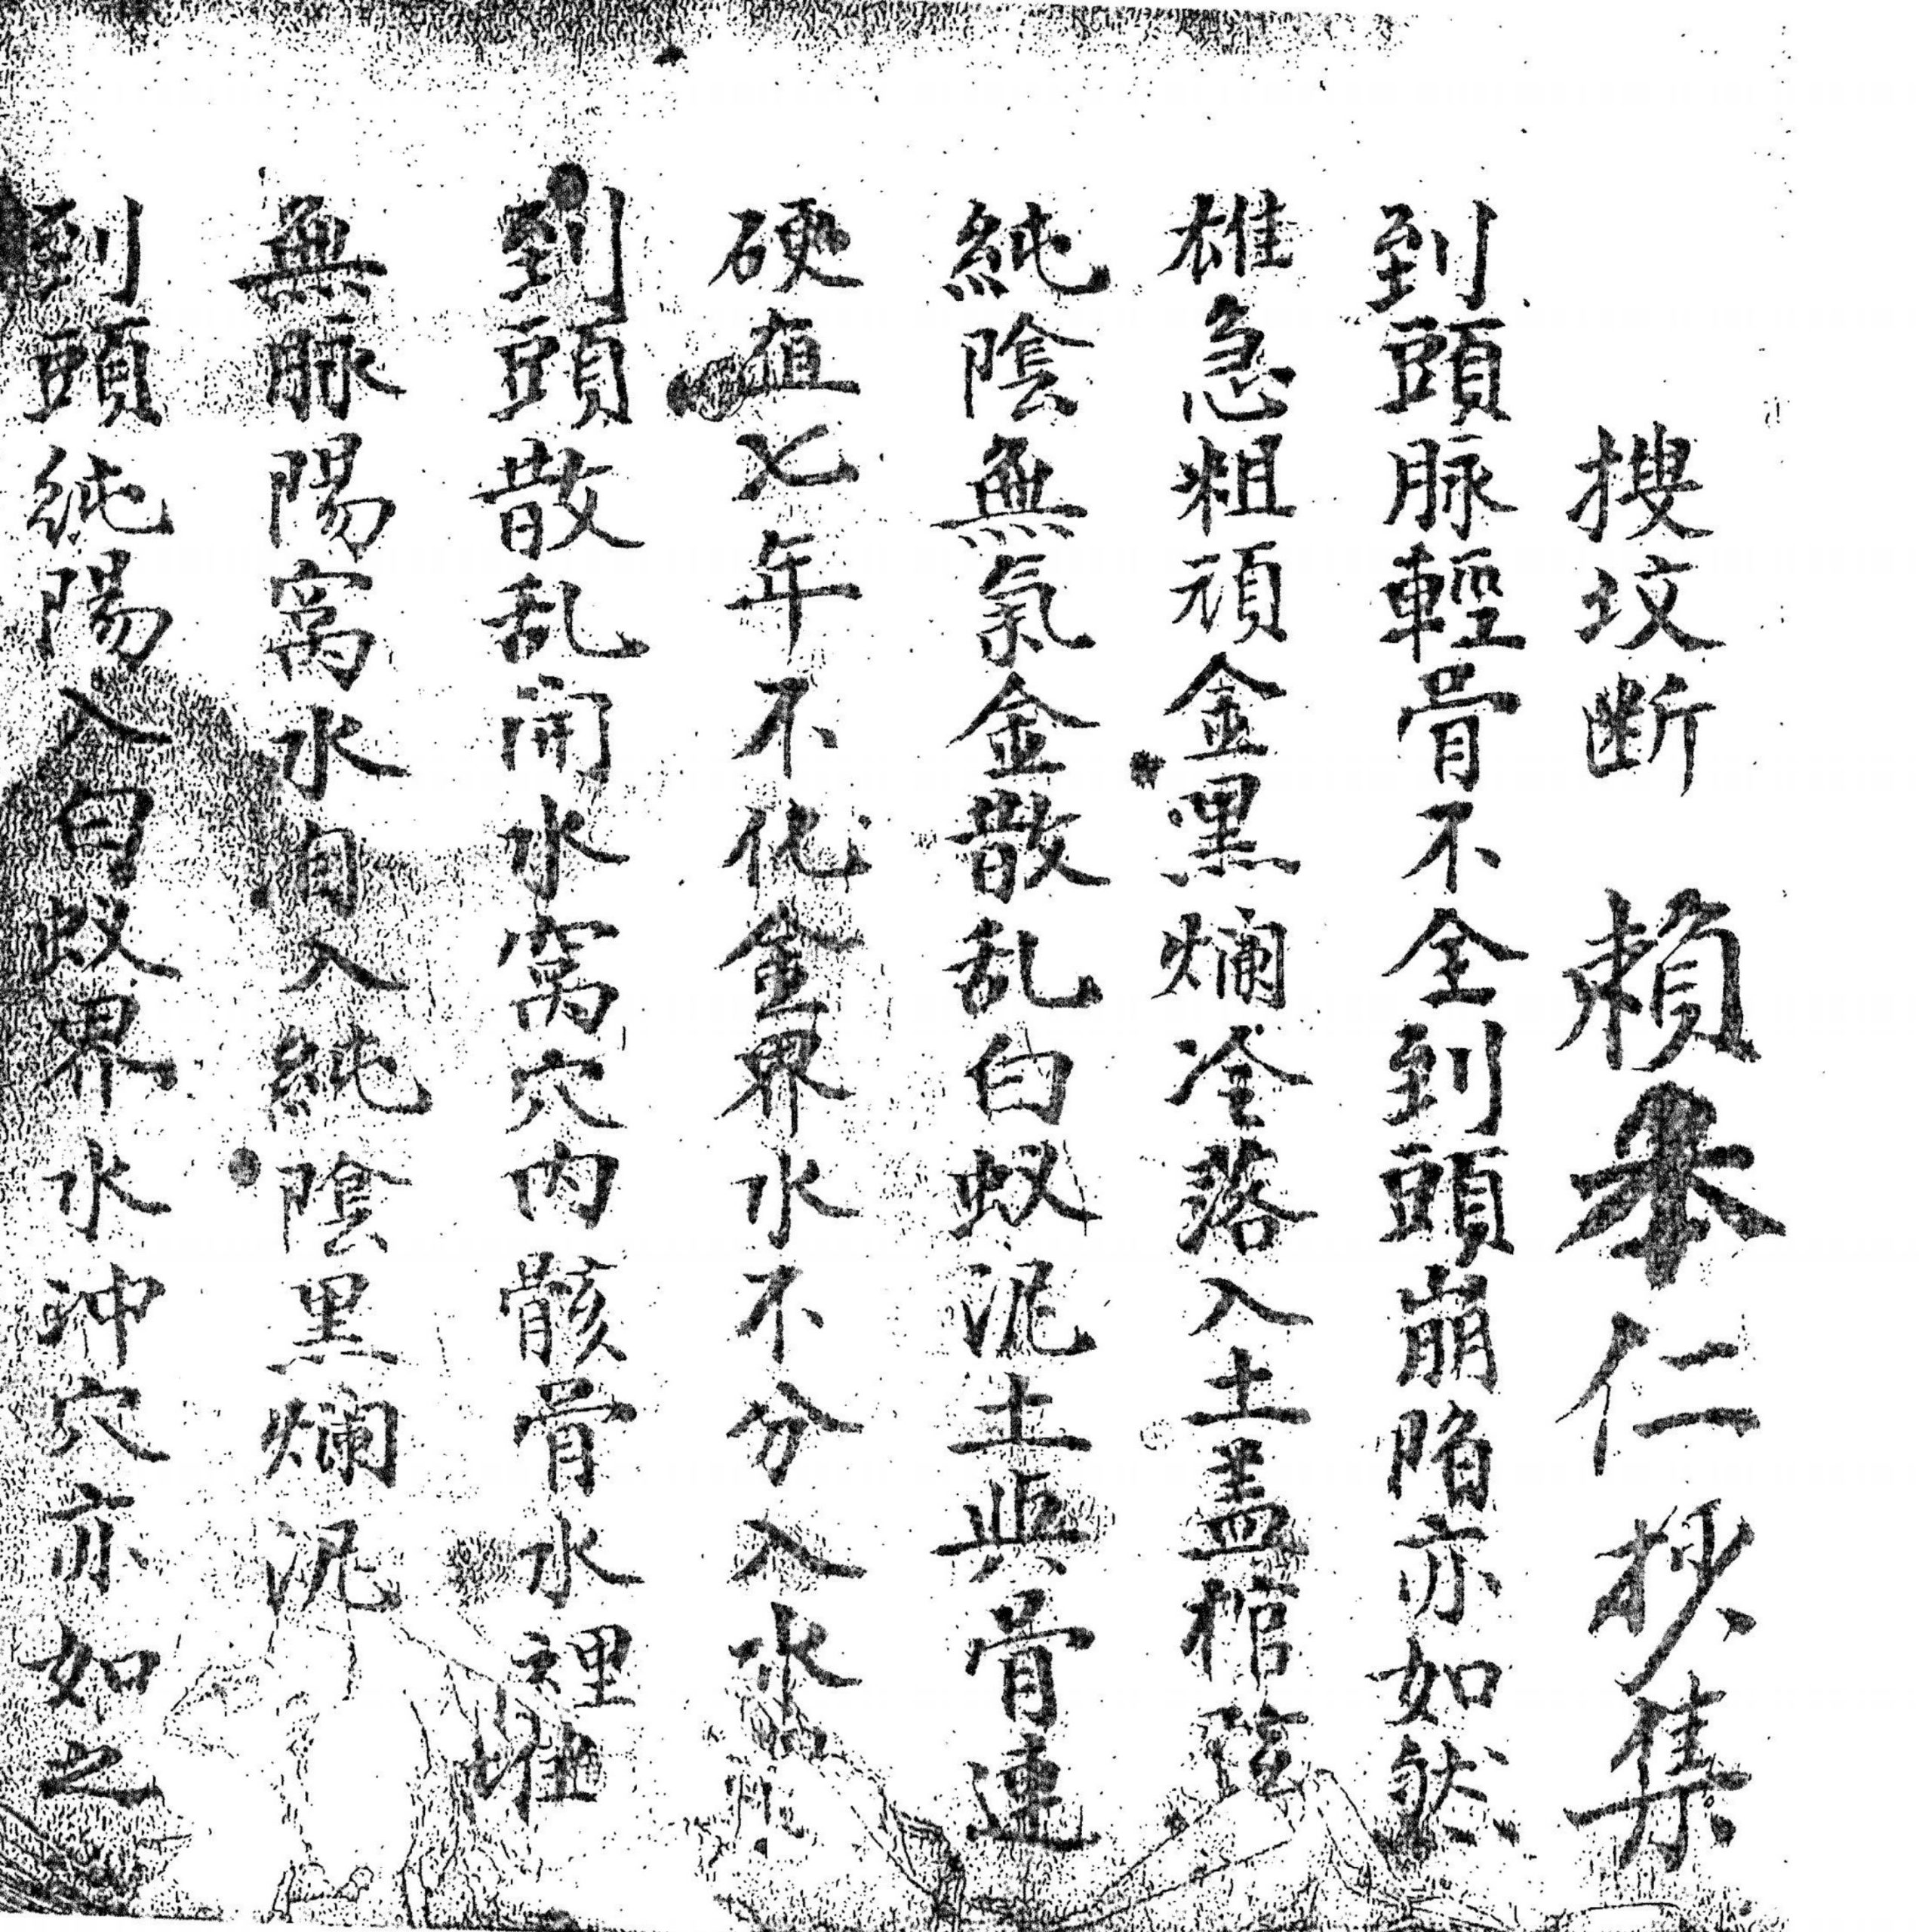 搜坟断 賴本仁抄集
到頭脉輕骨不全到頭崩陷亦如然
雄急粗頑金黑爛冷落入土盖棺
純陰無氣金散乱白蚁泥土與骨連
硬直七年不化金界水不分入水
到頭散乱開水窩穴内骸骨水裡堆
無脉陽窩水自入純陰黑爛泥
到頭純陽入白蚁界水冲穴亦如之